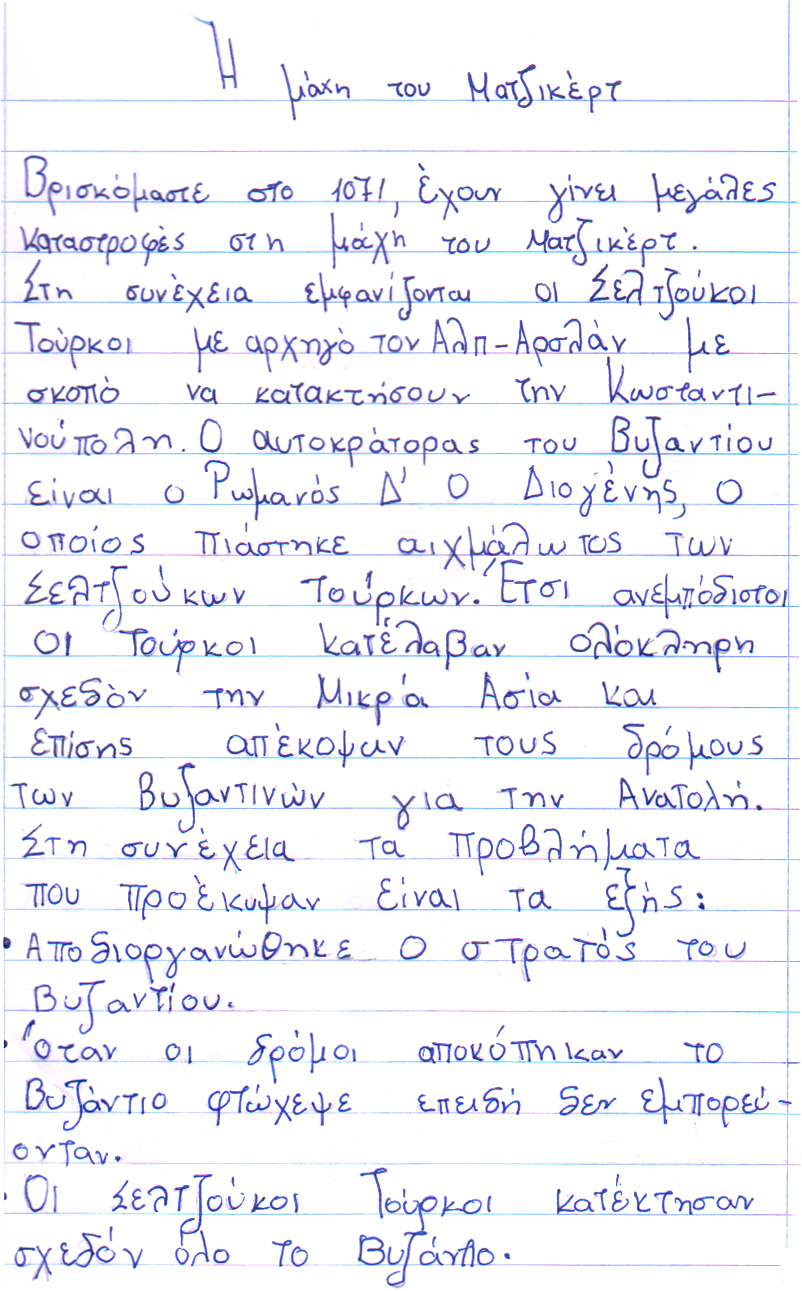 Η μάχη του Ματζικέρτ
Βρισκόμαστε στο 1071, έχουν γίνει μεγάλες
καταστροφές στη μάχη του Ματζικέρτ.
Στη συνέχεια εμφανίζονται οι Σελτζούκοι
Τούρκοι με αρχηγό τον Αλπ-Αρσλάν με
σκοπό να κατακτήσουν την Κωσταντι-
νούπολη. Ο αυτοκράτορας του Βυζαντίου
είναι ο Ρωμανός Δ' Ο Διογένης, Ο
οποίος πιάστηκε αιχμάλωτος των
Σελτζούκων Τούρκων. Έτσι ανεμπόδιστοι
οι Τούρκοι κατέλαβαν ολόκληρη
σχεδόν την Μικρά Ασία και
επίσης απέκοψαν τους δρόμους
των Βυζαντινών για την Ανατολή.
Στη συνέχεια τα προβλήματα
που προέκυψαν είναι τα εξής:
• Αποδιοργανώθηκε ο στρατός του
Βυζαντίου.
• Όταν οι δρόμοι αποκόπηκαν το
Βυζάντιο φτώχεψε επειδή δεν εμπορεύ-
ονταν.
• Οι Σελτζούκοι Τούρκοι κατέκτησαν
σχεδόν όλο το Βυζάντιο.